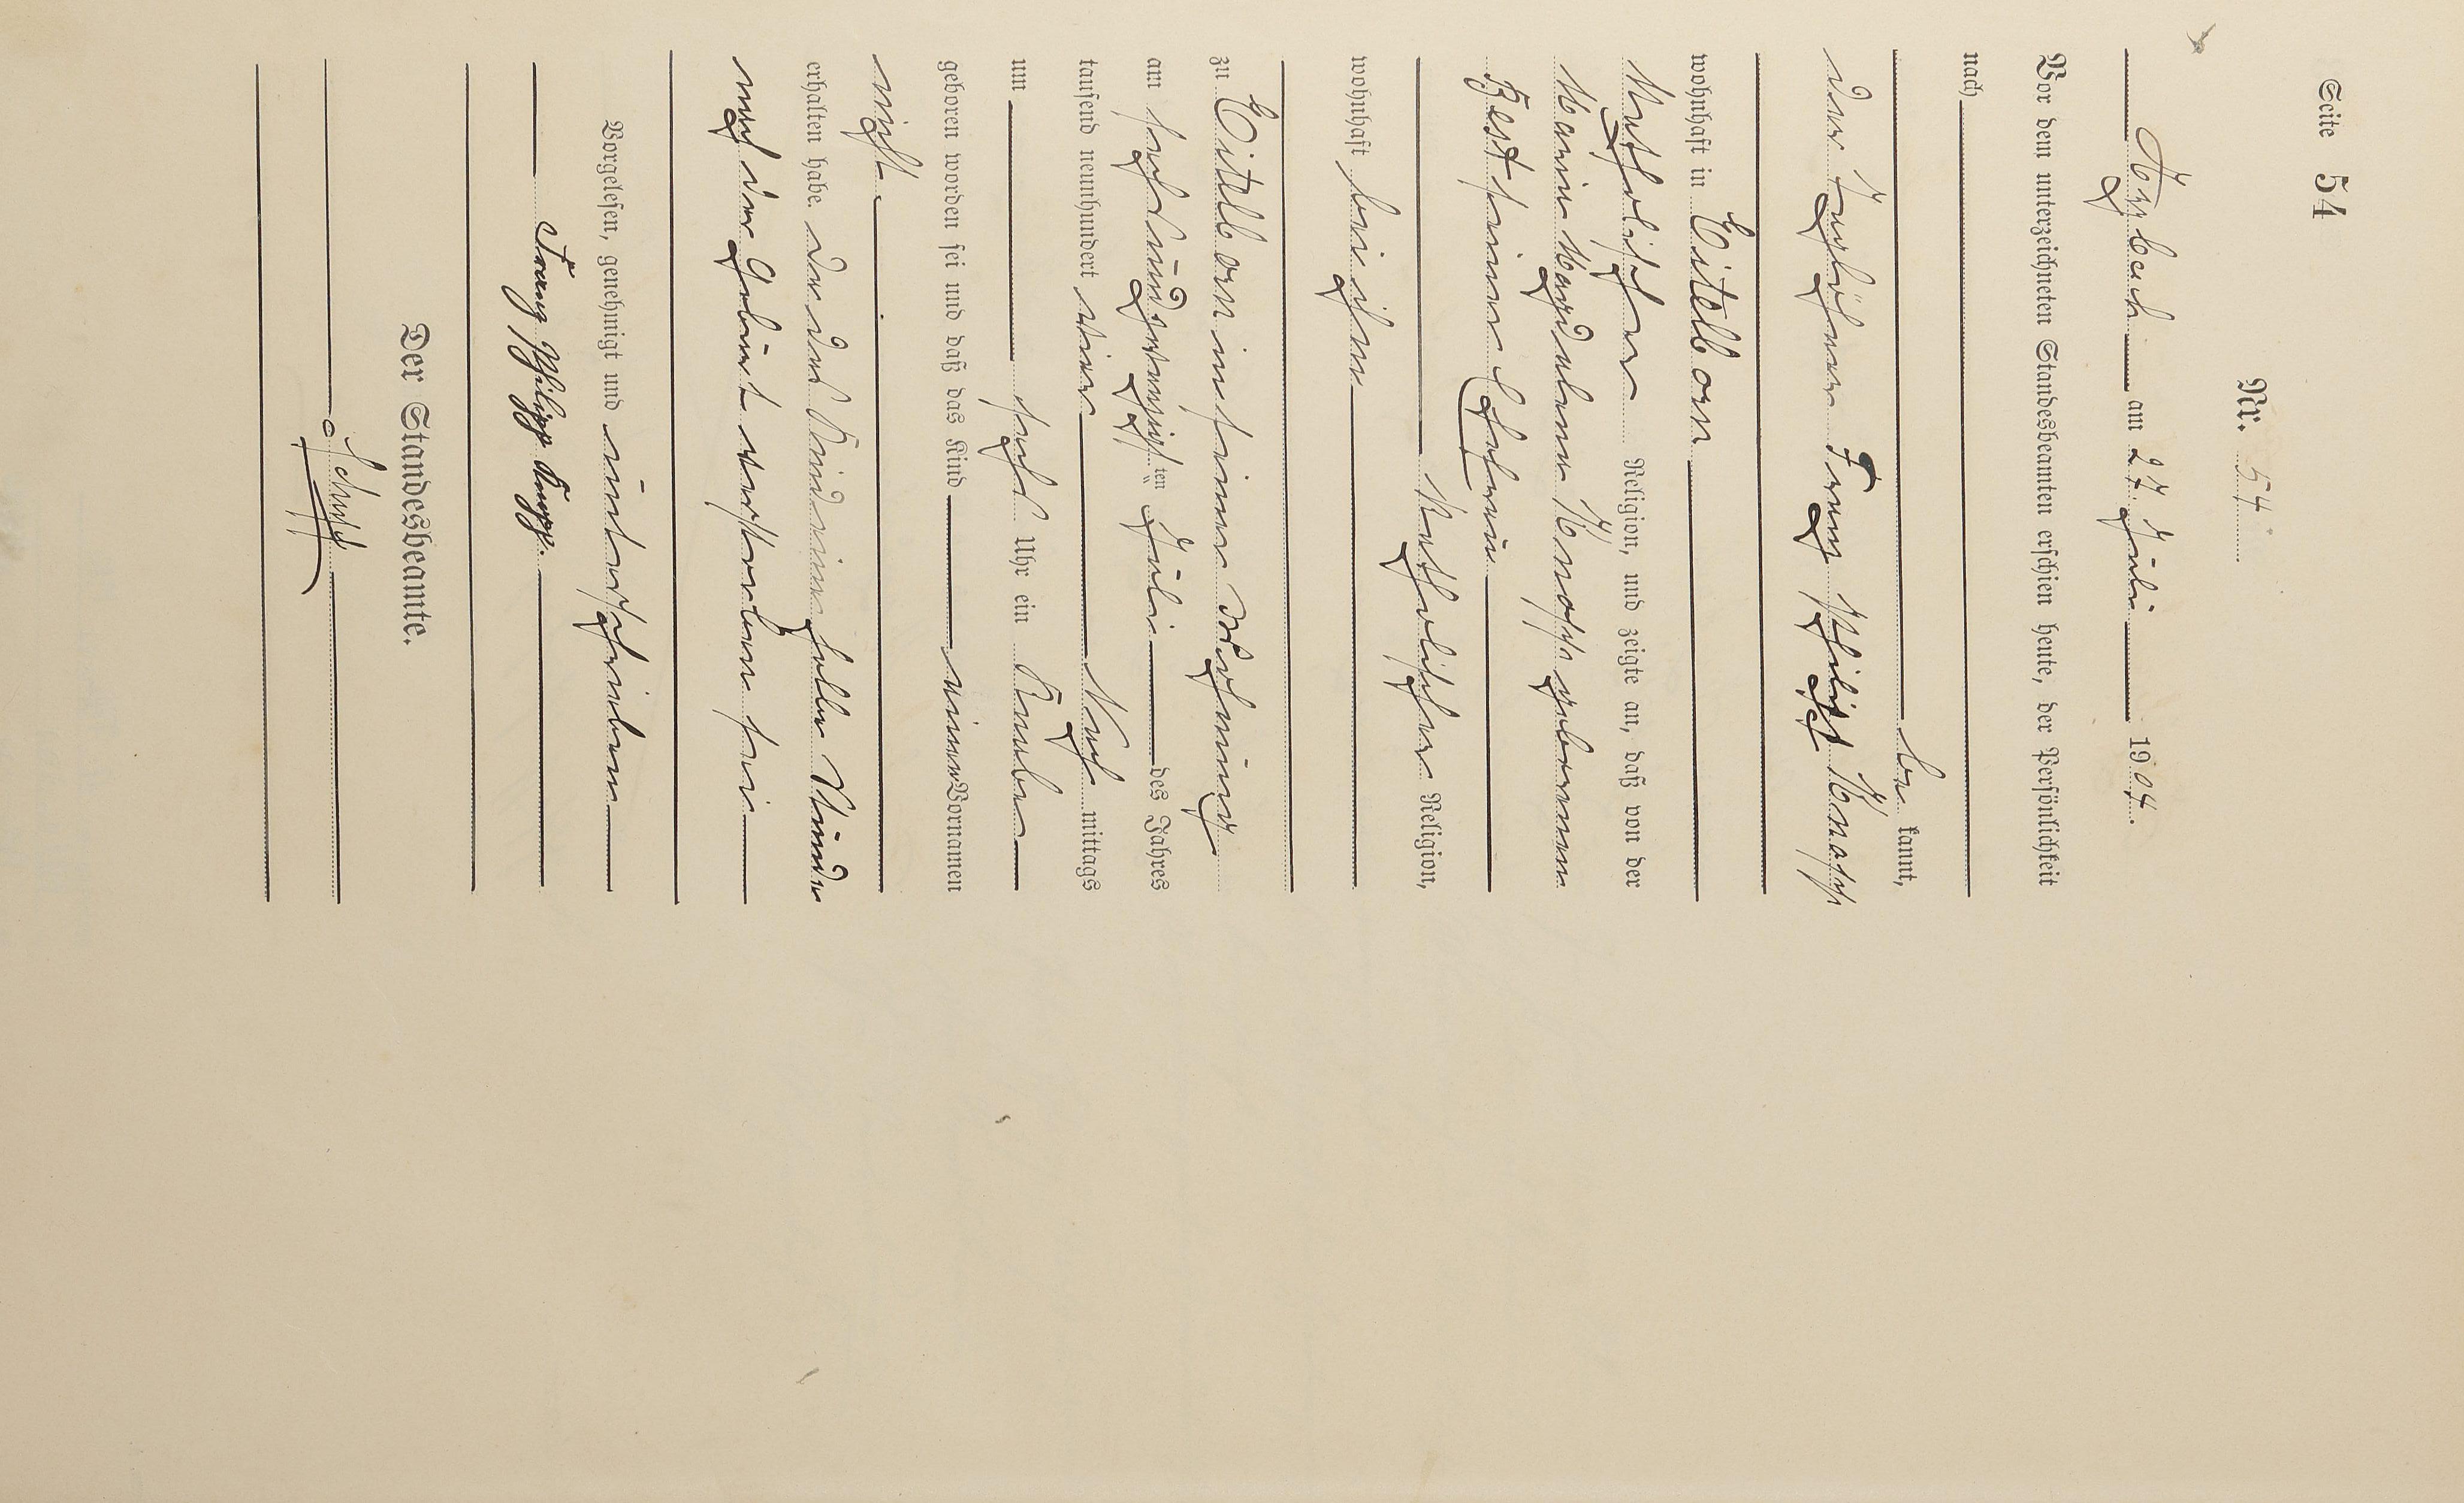 Seite 54
Nr. 54.
Arzbach am 27 Juli 1904.
Vor dem unterzeichneten Standesbeamten erschien heute, der Persönlichkeit
nach
be kannt,
der Taglöhner Franz Philipp Knopp
wohnhaft in Eitelborn
Katholischer Religion, und zeigte an, daß von der
Maria Magdalena Knopp geborenen
Best seiner Ehefrau
Katholischer Religion,
wohnhaft bei ihm
zu Eitelborn in seiner Wohnung
am sechsundzwanzigsten Juli des Jahres
tausend neunhundert vier Nach mittags
um sechs Uhr ein Knabe
geboren worden sei und daß das Kind einen Vornamen
nicht
erhalten habe. Da das Kind eine halbe Stunde
nach der Geburt verstorben sei
Vorgelesen, genehmigt und unterschrieben
Franz Philipp Knopp.
Der Standesbeamte.